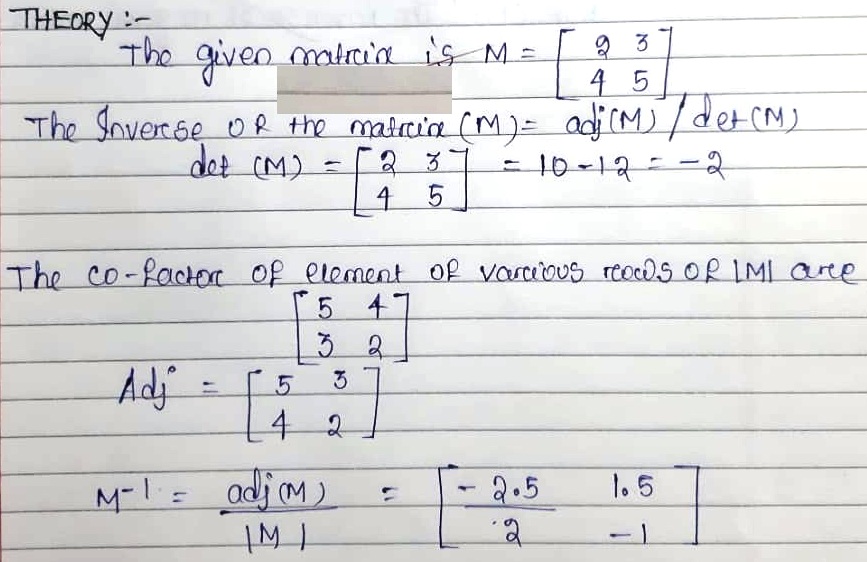 THEORY :-
The given matrix is M = [ 2 3
4 5 ]
The Inverse of the matrix (M) = adj(M) / det(M)
det (M) = [ 2 3 = 10 - 12 = - 2
4 5 ]
The co-factor of element of various rows of |M| are
[ 5 4
3 2 ]
Adj = [ 5 3
4 2 ]
M-1 = adj(M) = [ - 2.5 1.5
|M| 2 -1 ]